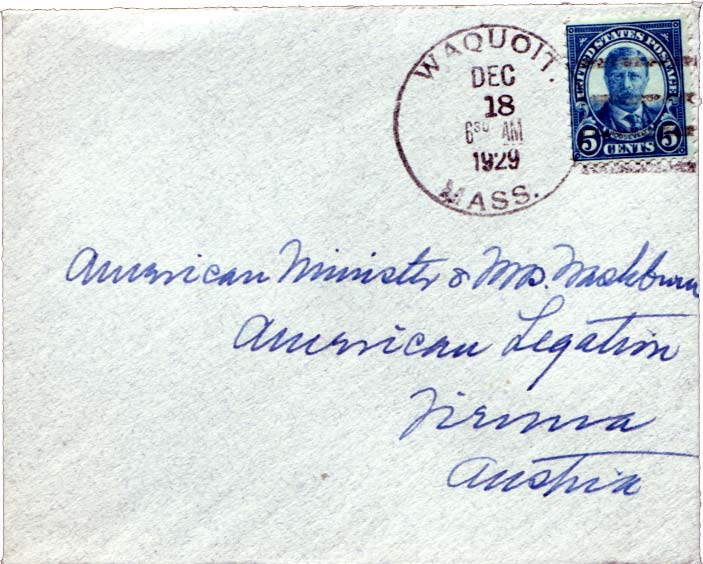 WAQUOIT.
DEC
18
6 30 AM
1929
MASS.
UNITED STATES POSTAGE
ROOSEVELT
5 CENTS 5
American Minister & Mrs. Washburn
American Legation
Vienna
Austria